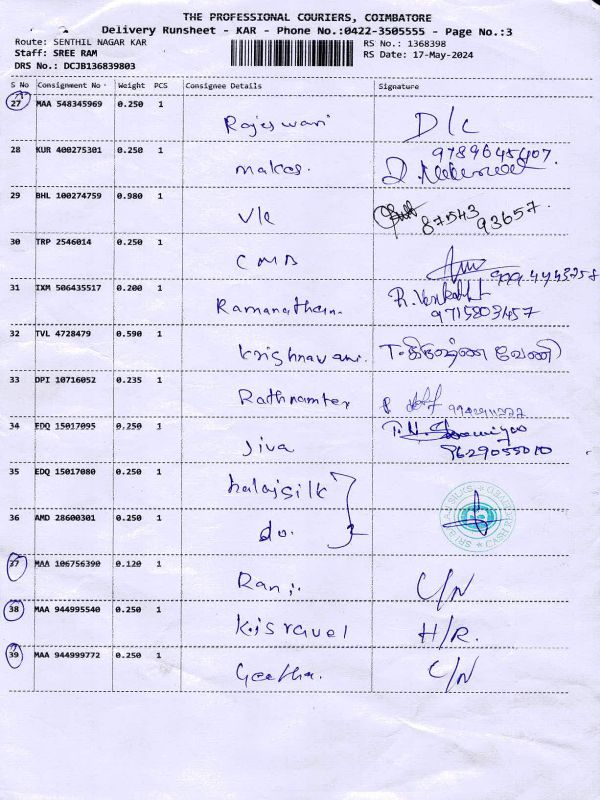 THE PROFESSIONAL COURIERS, COIMBATORE
Delivery Runsheet - KAR - Phone No.:0422-3505555 - Page No.:3
Route: SENTHIL NAGAR KAR
RS No.: 1368398
Staff: SREE RAM
RS Date: 17-May-2024
DRS No.: DCJB136839803
S No Consignment No Weight PCS Consignee Details Signature
27 MAA 548345969 0.250 1 Rajeswari D/C
28 KUR 400275301 0.250 1 9789645407.
29 BHL 100274759 0.980 1 87543 93657.
30 TRP 2546014 0.250 1 CMB
31 IXM 506435517 0.200 1 Ramanathan. R. Venkatt
9715803457
32 TVL 4728479 0.590 1 Krishnavani. T. வேணி
33 DPI 10716052 0.235 1
34 EDQ 15017095 0.250 1 Jiva
9629055010
35 EDQ 15017080 0.250 1
36 AMD 28600301 0.250 1 do.
37 MAA 106756390 0.120 1 C/N
38 MAA 944995540 0.250 1 H/R.
39 MAA 944999772 0.250 1 Geetha. C/N